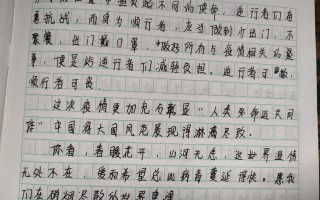 不同的使命，逆行者们有
着抗战，而身为顺行者，应当做到少出门，不
聚餐，出门戴口罩，做好所有与疫情相关的
事，便是给逆行者们减轻负担。逆行者可敬，
顺行者可贵。
这次疫情更加充分彰显"人类命运共同
体"中国将大国风范展现得淋漓尽致。
你看，春暖花开，山河无恙，这世界温情
无处不在，爱和希望总比病毒蔓延得快。愿我
们在硝烟尽散的世界重逢